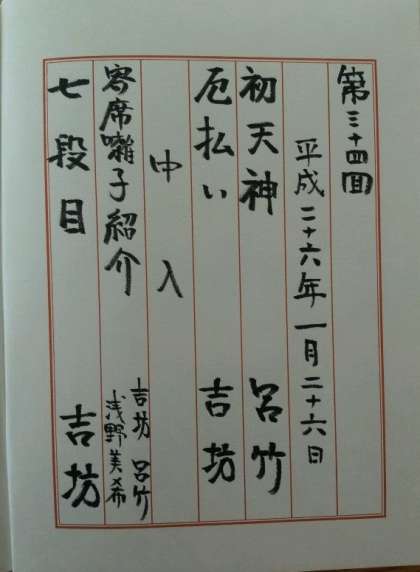 第三十四回
平成二十六年一月二十六日
初天神 呂竹
厄払い 吉坊
中入
寄席囃子紹介 吉坊 呂竹
浅野美希
七段目 吉坊